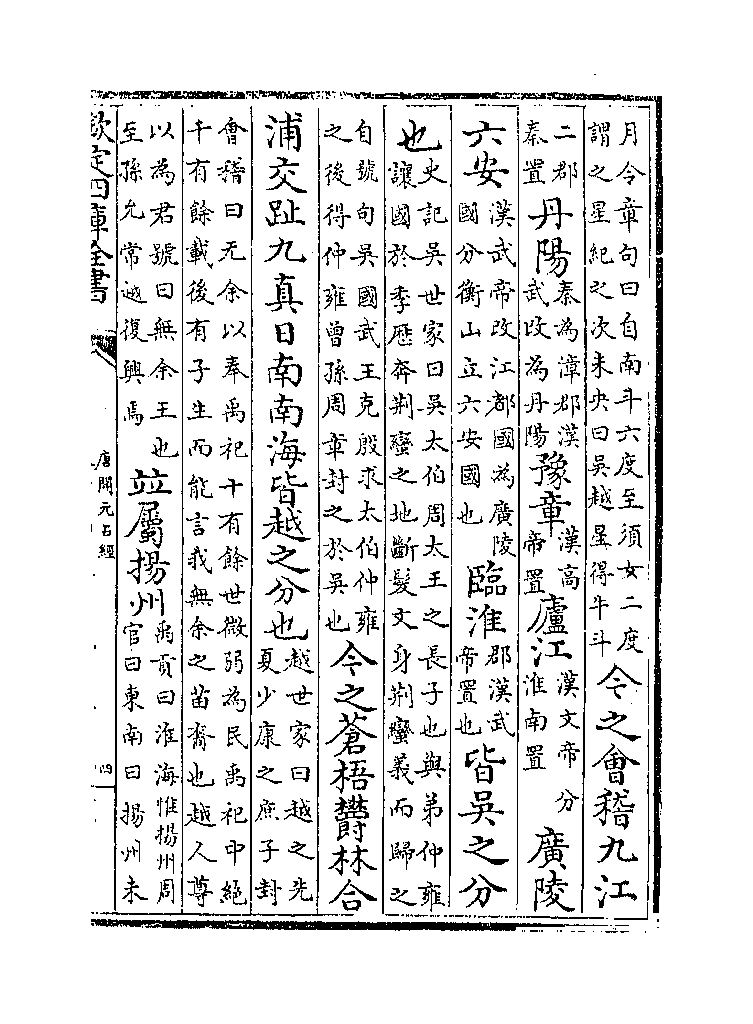 月令章句曰自南斗六度至須女二度謂之星紀之次未央曰吳越星得牛斗今之會稽九江
二郡秦置丹陽秦為漳郡漢武改為丹陽豫章漢高帝置廬江漢文帝分淮南置廣陵
六安漢武帝改江都國為廣陵國分衡山立六安國也臨淮郡漢武帝置也皆吳之分
也史記吳世家曰吳太伯周太王之長子也與弟仲雍讓國於季歷奔荆蠻之地斷髮文身荆蠻義而歸之
自號句吳國武王克殷求太伯仲雍之後得仲雍曾孫周章封之於吳也今之蒼梧欝林合
浦交趾九真日南南海皆越之分也越世家曰越之先夏少康之庶子封
會稽曰无余以奉禹祀十有餘世微弱為民禹祀中絕千有餘載後有子生而能言我無余之苗裔也越人尊
以為君號曰無余王也至孫允常越復興焉竝屬揚州禹貢曰淮海惟揚州周官曰東南曰揚州未
欽定四庫全書
唐開元占經